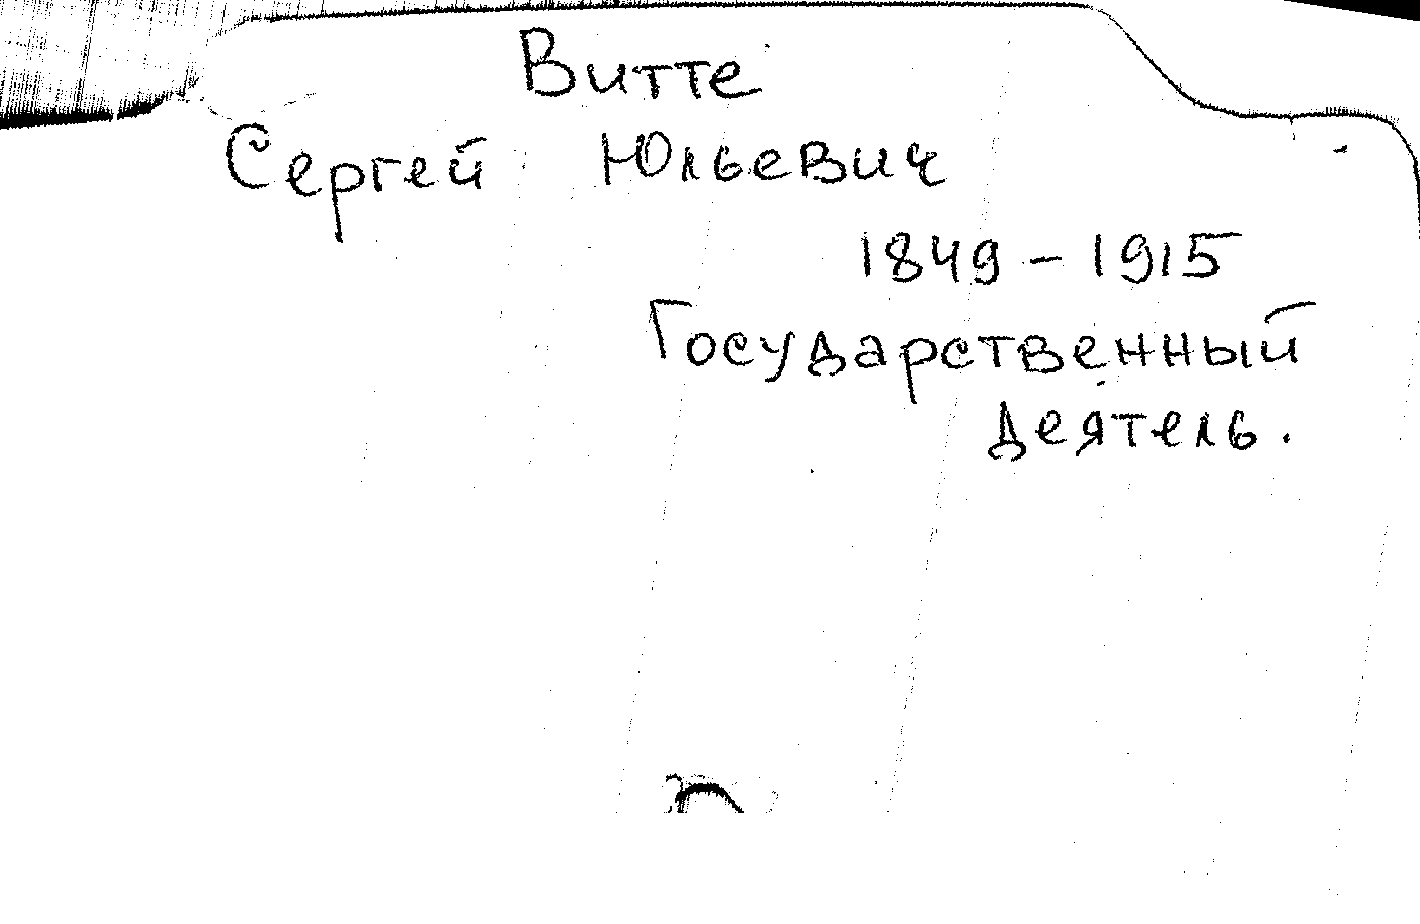 Витте
Сергей Юльевич
1849 - 1915
Государственный
деятель.